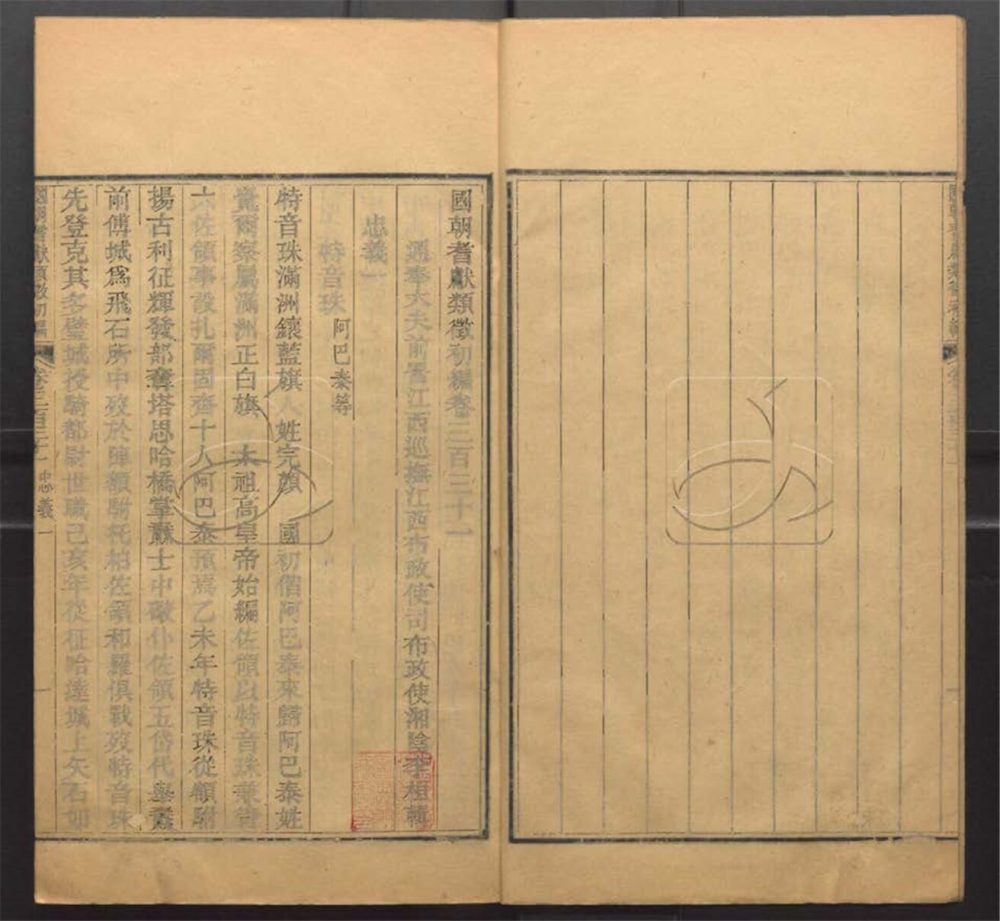 國朝耆獻類徵初編卷三百三十一
通奉大夫前署江西巡撫江西布政使司布政使湘陰李桓輯
忠義一
特音珠 阿巴泰等
特音珠滿洲鑲藍旗人姓完顏 國初偕阿巴泰來歸阿巴泰姓
覺爾察屬滿洲正白旗 太祖高皇帝始編佐領以特音珠兼管
六佐領事設扎爾固齊十人阿巴泰預焉乙未年特音珠從額駙
揚古利征輝發部奪塔思哈橋掌纛士中礮仆佐領五岱代舉纛
前傅城爲飛石所中歿於陣額駙托柏佐領和羅俱戰歿特音珠
先登克其多璧城授騎都尉世職己亥年從征哈達城上矢石如
國朝耆獻類徵初編 卷三百三十一 忠義一 一